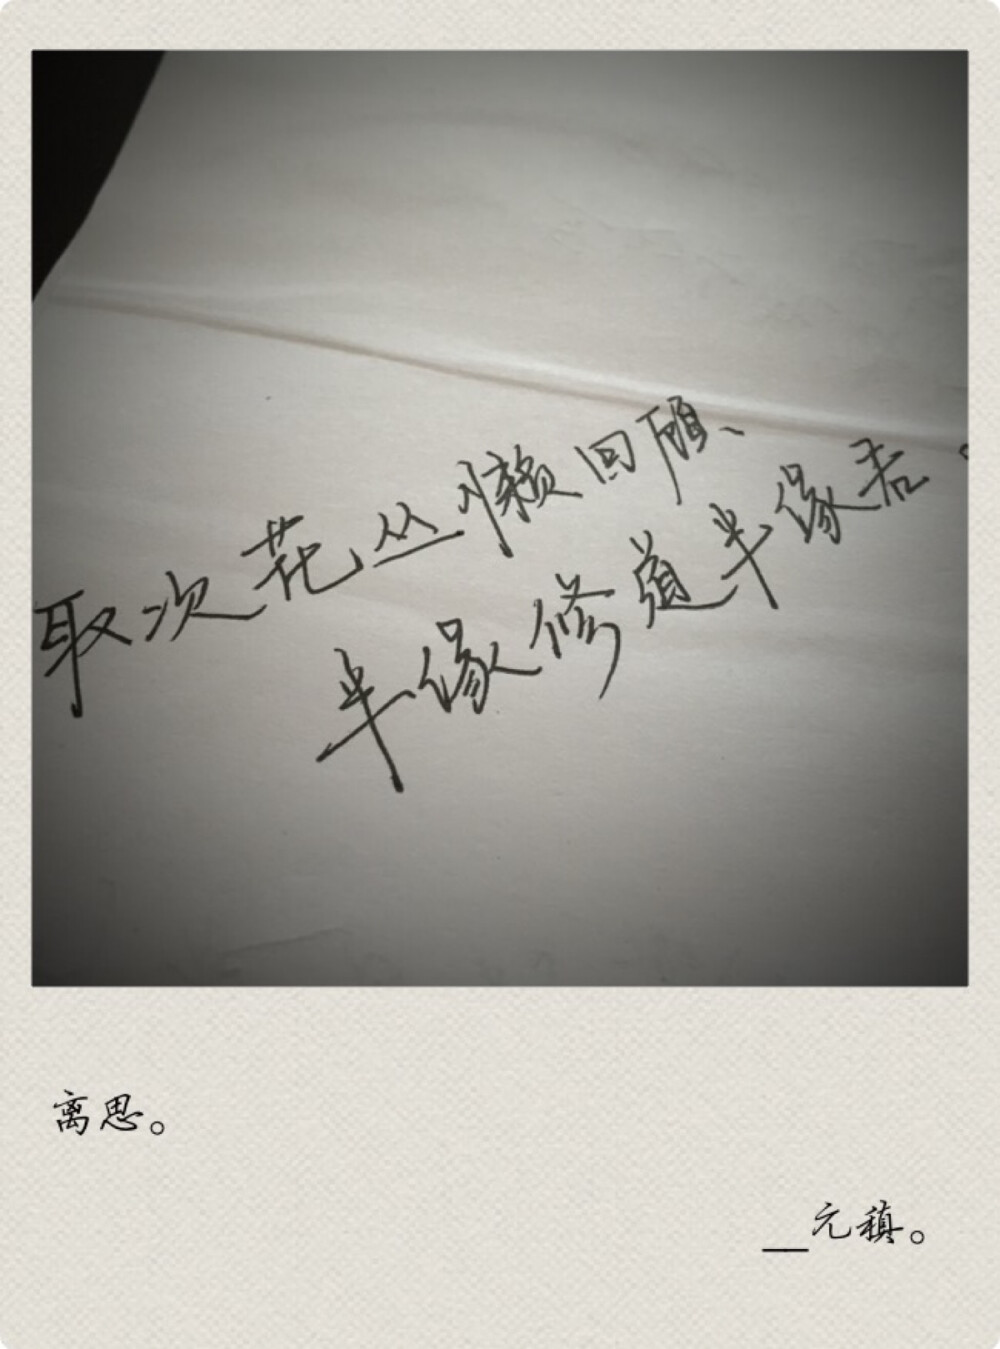 取次花丛懒回顾、
半缘修道半缘君。
离思。
__元稹。